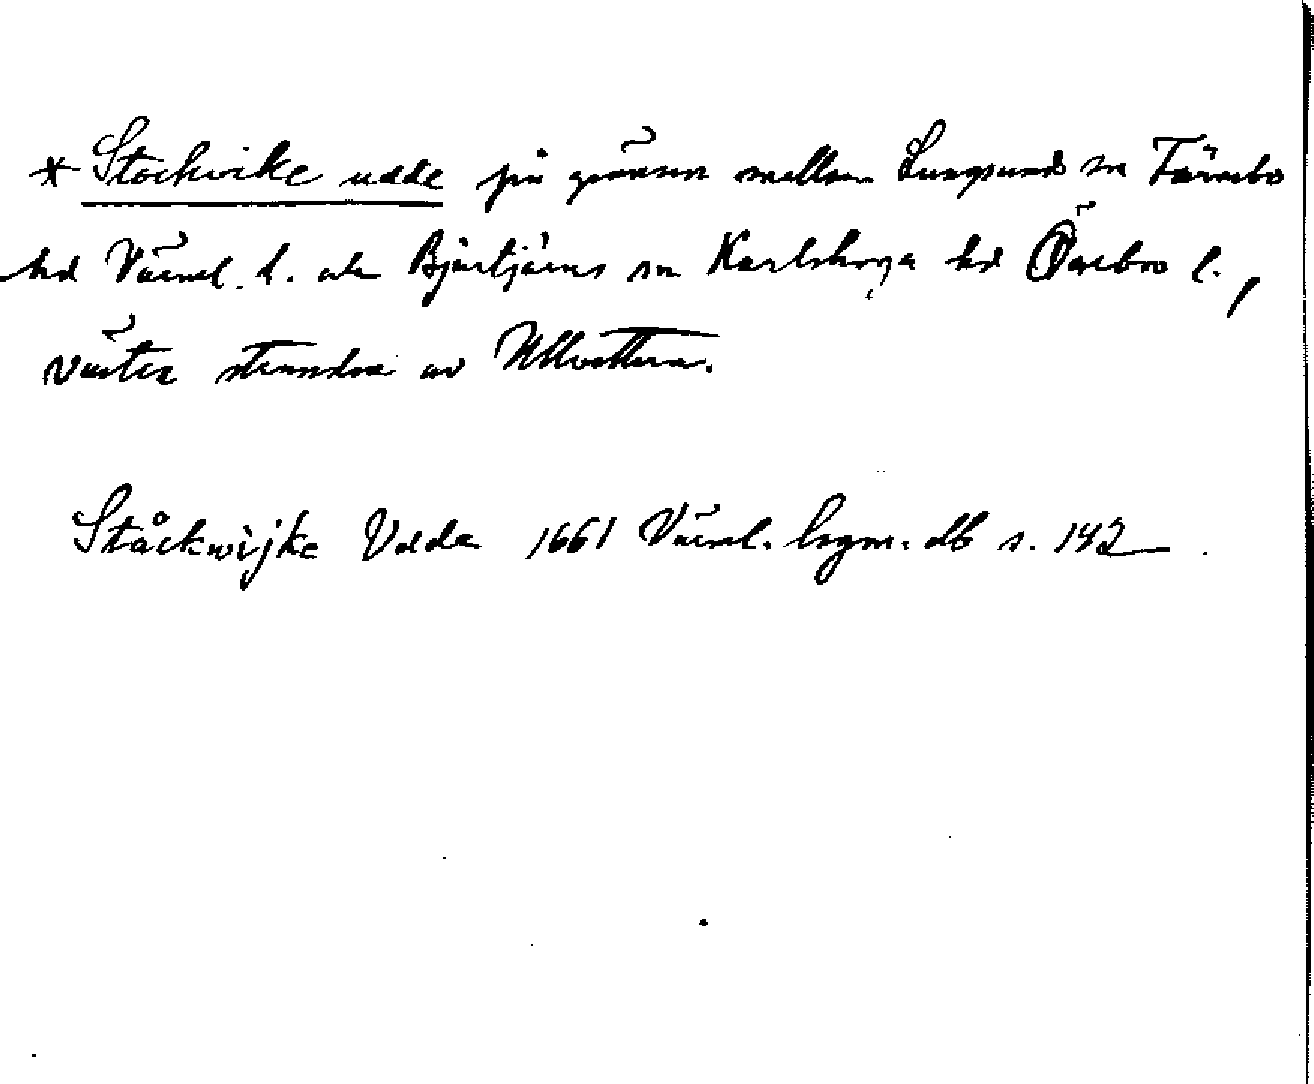 * Stockvike udde på gränsen mellan Lungsund sn Färnebo
hd Värml. l. och Bjurtjärns sn Karlskoga hd Örebro l.,
västra stranden av Ullvettern.
Ståckwijke Udde 1661 Värml. lszm. db s. 142